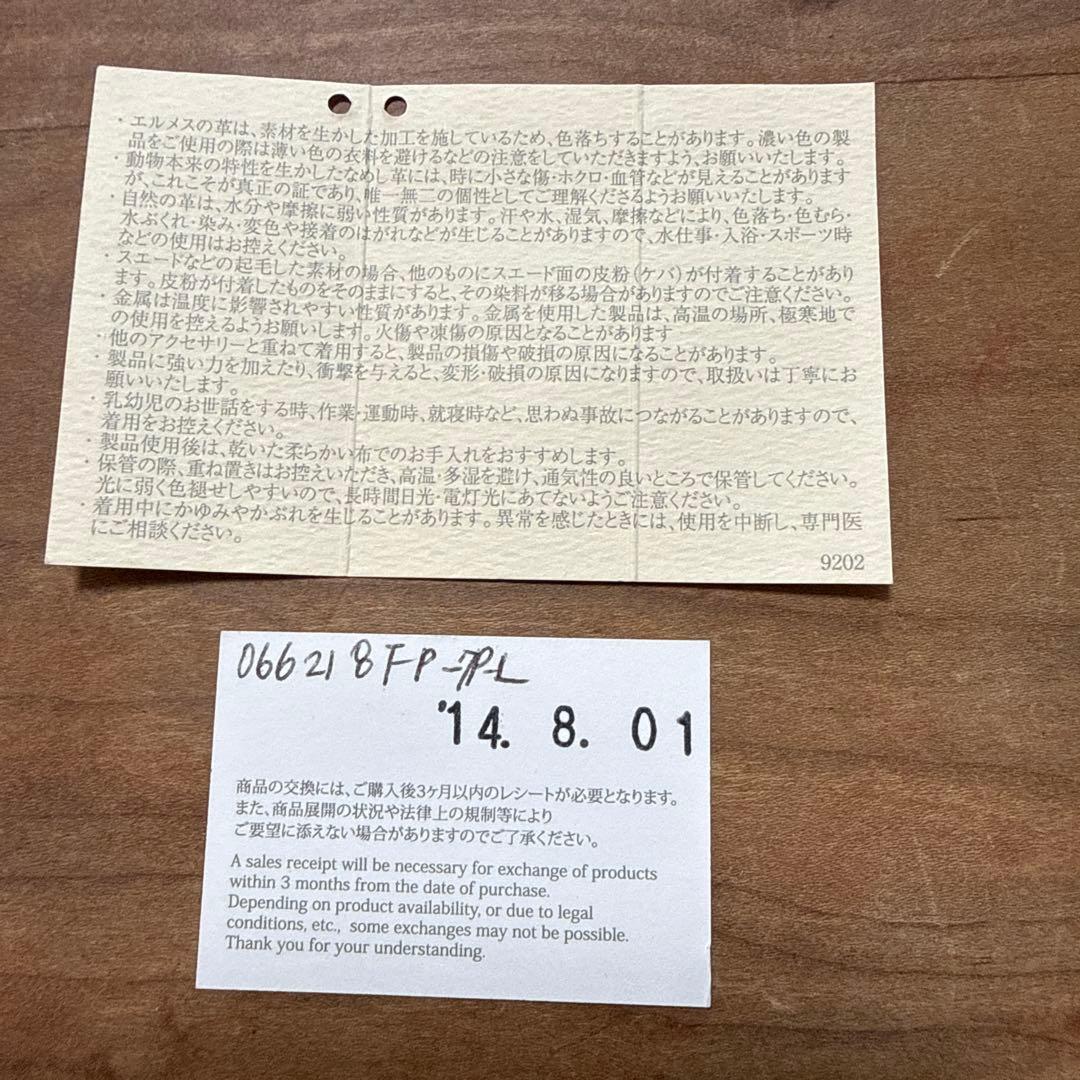 ・エルメスの革は、素材を生かした加工を施しているため、色落ちすることがあります。濃い色の製
品をご使用の際は薄い色の衣料を避けるなどの注意をしていただきますよう、お願いいたします。
・動物本来の特性を生かしたなめし革には、時に小さな傷・ホクロ・血管などが見えることがあります
が、これこそが真正の証であり、唯一無二の個性としてご理解くださるようお願いいたします。
・自然の革は、水分や摩擦に弱い性質があります。汗や水、湿気、摩擦などにより、色落ち・色むら・
水ぶくれ・染み・変色や接着のはがれなどが生じることがありますので、水仕事・入浴・スポーツ時
などの使用はお控えください。
・スエードなどの起毛した素材の場合、他のものにスエード面の皮粉（ケバ）が付着することがあり
ます。皮粉が付着したものをそのままにすると、その染料が移る場合がありますのでご注意ください。
・金属は温度に影響されやすい性質があります。金属を使用した製品は、高温の場所、極寒地で
の使用を控えるようお願いします。火傷や凍傷の原因となることがあります
・他のアクセサリーと重ねて着用すると、製品の損傷や破損の原因になることがあります。
・製品に強い力を加えたり、衝撃を与えると、変形・破損の原因になりますので、取扱いは丁寧にお
願いいたします。
・乳幼児のお世話をする時、作業・運動時、就寝時など、思わぬ事故につながることがありますので、
着用をお控えください。
・製品使用後は、乾いた柔らかい布でのお手入れをおすすめします。
・保管の際、重ね置きはお控えいただき、高温・多湿を避け、通気性の良いところで保管してください。
光に弱く色褪せしやすいので、長時間日光・電灯光にあてないようご注意ください。
・着用中にかゆみやかぶれを生じることがあります。異常を感じたときには、使用を中断し、専門医
にご相談ください。
9202
066218
'14. 8. 01
商品の交換には、ご購入後3ヶ月以内のレシートが必要となります。
また、商品展開の状況や法律上の規制等により
ご要望に添えない場合がありますのでご了承ください。
A sales receipt will be necessary for exchange of products
within 3 months from the date of purchase.
Depending on product availability, or due to legal
conditions, etc., some exchanges may not be possible.
Thank you for your understanding.